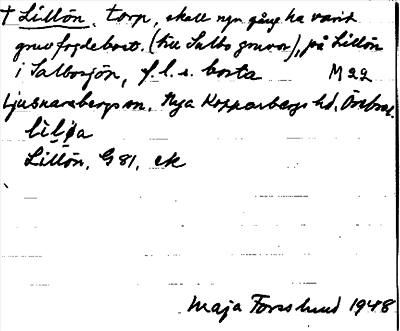 † Lillön, torp, skall ngn gång ha varit
gruvfogdebost. (till Salbo gruvor), på Lillön
i Salbosjön, f.l.s. borta M 22
Ljusnarsbergs sn. Nya Kopparbergs hd. Örebro l.
Lillön, G 81, ek
Maja Forsslund 1948